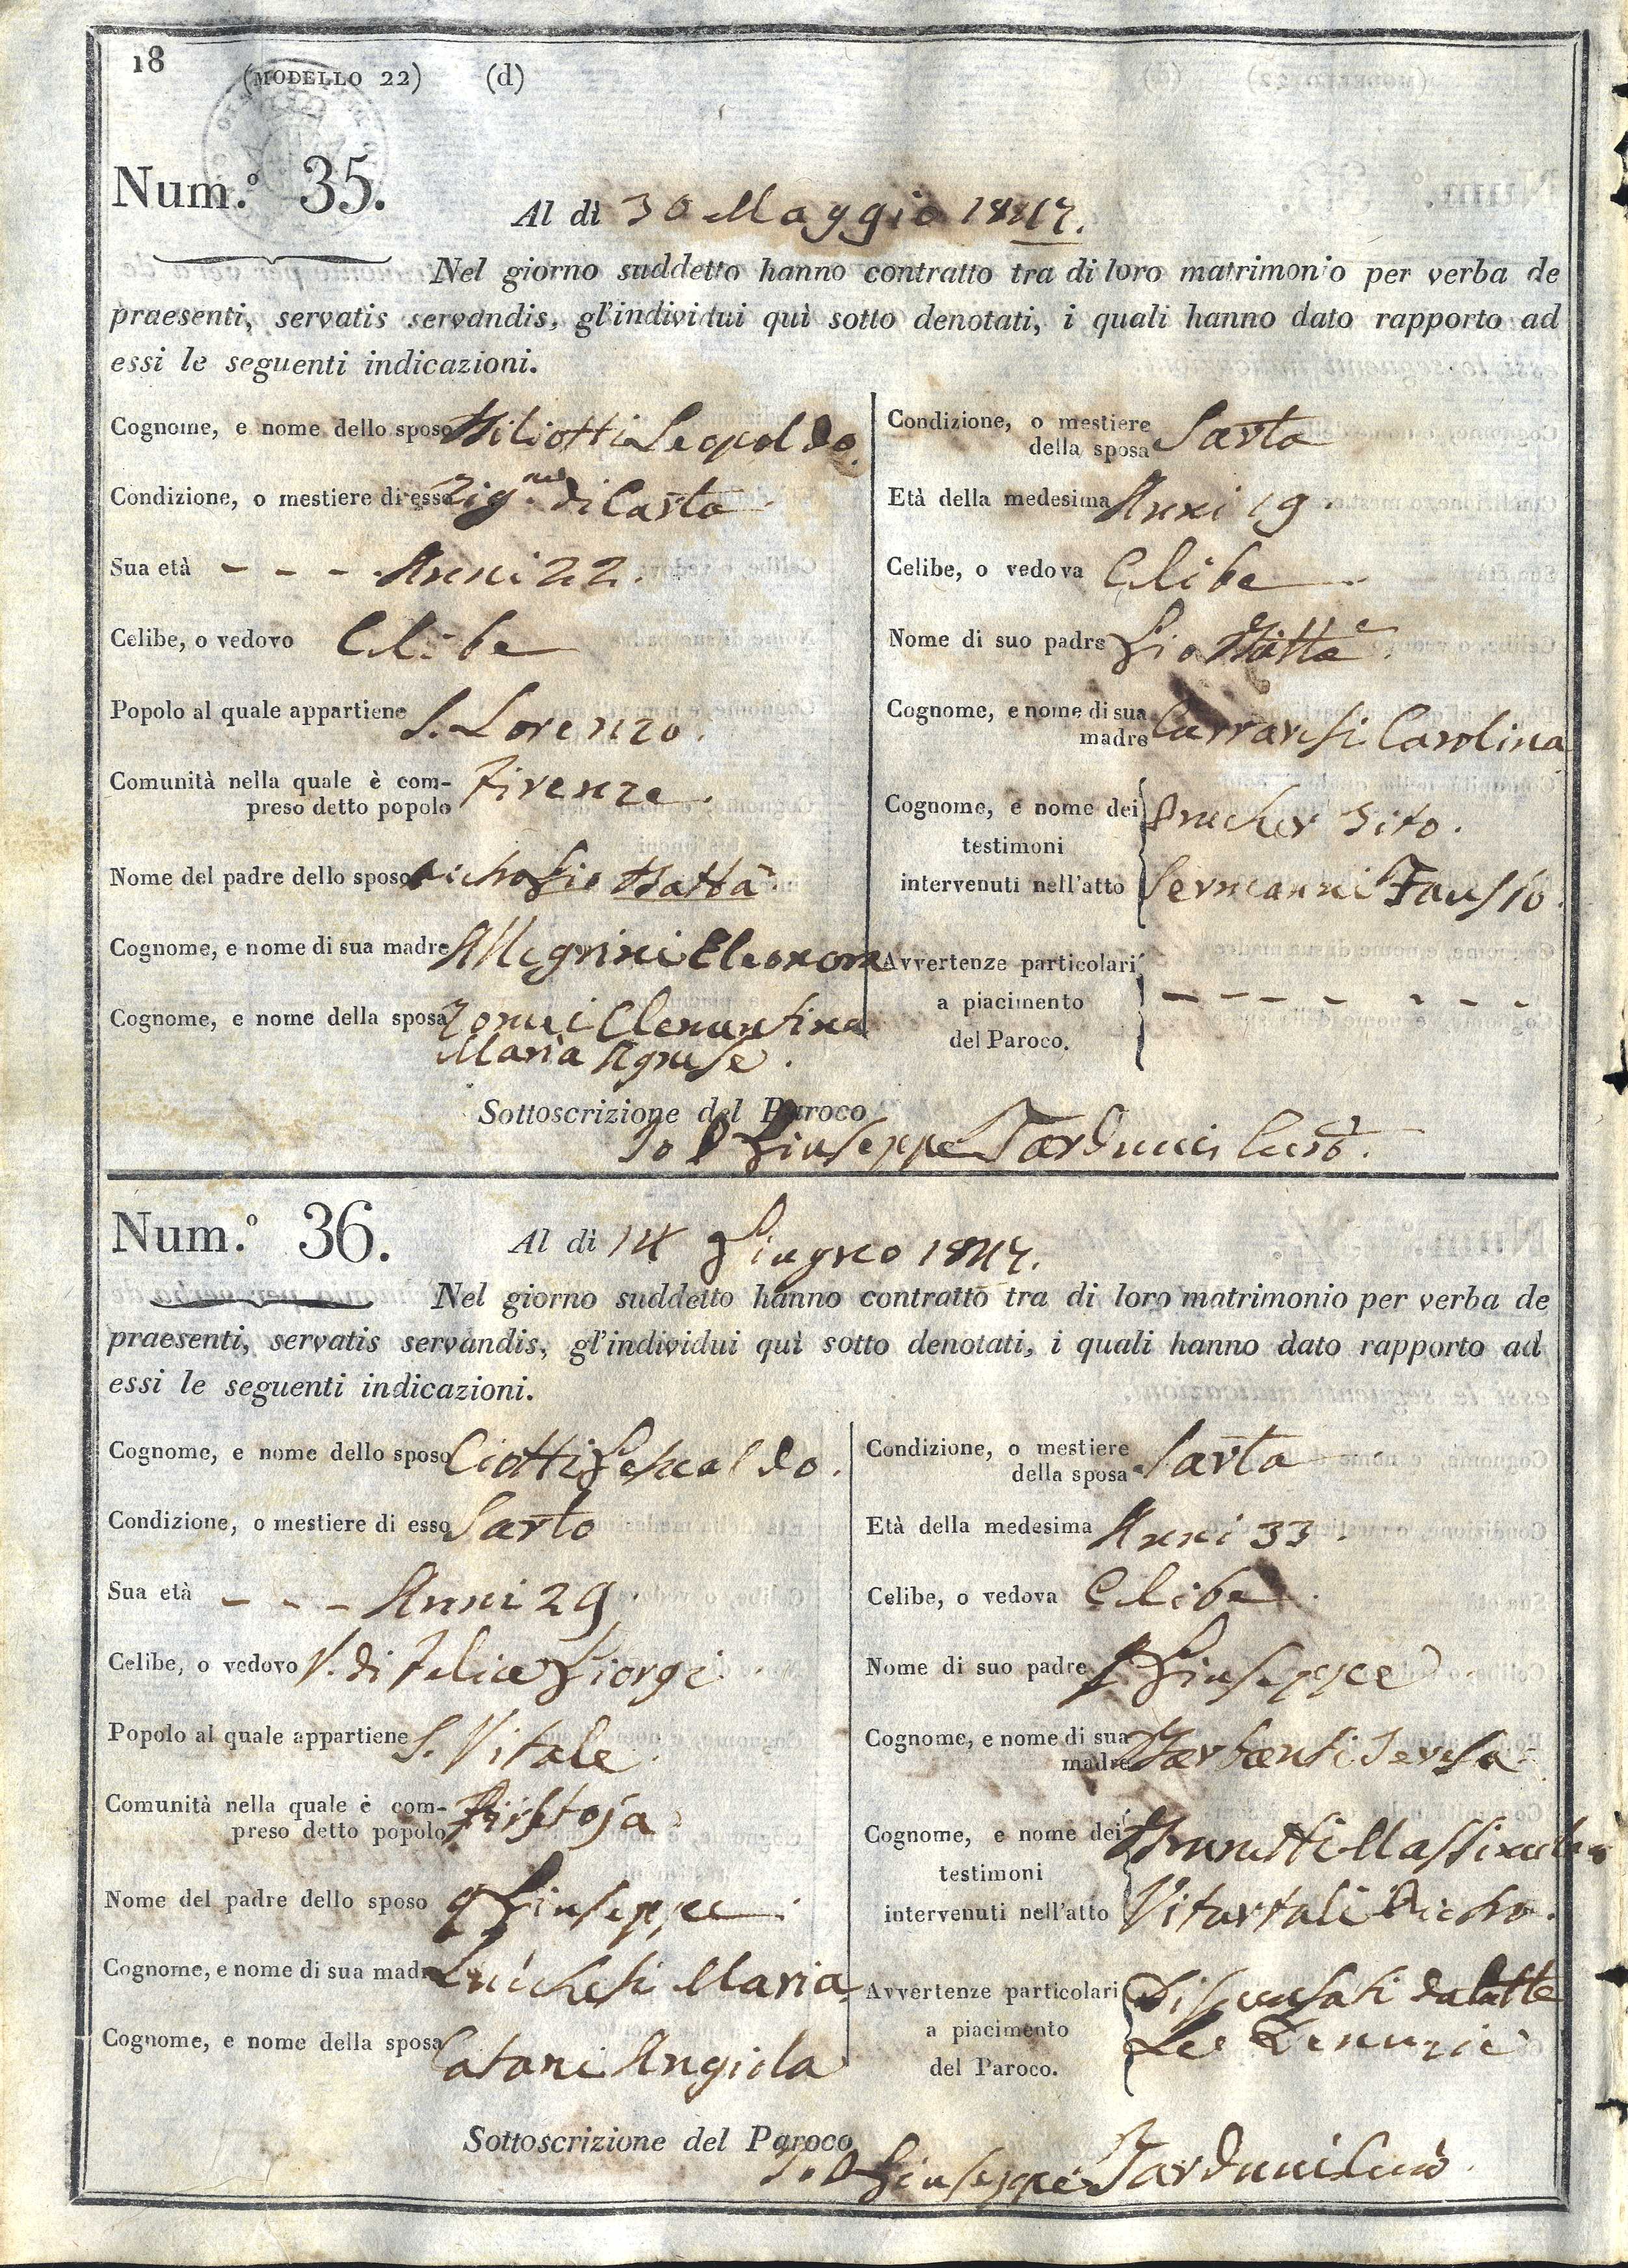 18
(MODELLO 22) (d)
Num.º 35.
Al dì 30 Maggio 1847.
Nel giorno suddetto hanno contratto tra di loro matrimonio per verba de
praesenti, servatis servandis, gl'individui quì sotto denotati, i quali hanno dato rapporto ad
essi le seguenti indicazioni.
Cognome, e nome dello sposo Leopoldo.
Condizione, o mestiere di esso di Carta
Sua età - - - Anni 22.
Celibe, o vedovo Celibe
Popolo al quale appartiene S. Lorenzo.
Comunità nella quale è com-
preso detto popolo Firenze.
Nome del padre dello sposo Gio Batta
Cognome, e nome di sua madre Allegrini Eleonora
Cognome, e nome della sposa Clementina
Maria Agnese.
Condizione, o mestiere
della sposa Sarta
Età della medesima Anni 19.
Celibe, o vedova Celibe
Nome di suo padre Gio Batta
Cognome, e nome di sua
madre Carraresi Carolina
Cognome, e nome dei
testimoni
intervenuti nell'atto
Tito.
Fausto.
Avvertenze particolari
a piacimento
del Paroco.
- - - - - - -
Sottoscrizione del Paroco
Io D Giuseppe Tarducci Curò.
Num.º 36.
Al dì 14 Giugno 1847.
Nel giorno suddetto hanno contratto tra di loro matrimonio per verba de
praesenti, servatis servandis, gl'individui quì sotto denotati, i quali hanno dato rapporto ad
essi le seguenti indicazioni.
Cognome, e nome dello sposo Ciotti
Condizione, o mestiere di esso Sarto
Sua età - - - Anni 29.
Celibe, o vedovo V. di Felice Giorgi
Popolo al quale appartiene S. Vitale
Comunità nella quale è com-
preso detto popolo Pistoja
Nome del padre dello sposo q Giuseppe.
Cognome, e nome di sua madre Lucchesi Maria
Cognome, e nome della sposa Catani Angiola
Condizione, o mestiere
della sposa Sarta
Età della medesima Anni 33.
Celibe, o vedova Celibe.
Nome di suo padre Giuseppe
Cognome, e nome di sua
madre Teresa
Cognome, e nome dei
testimoni
intervenuti nell'atto
Brunetti
Avvertenze particolari
a piacimento
del Paroco.
Dispensati da tutte
Le Denunzie
Sottoscrizione del Paroco
Io D Giuseppe Tarducci Curò.